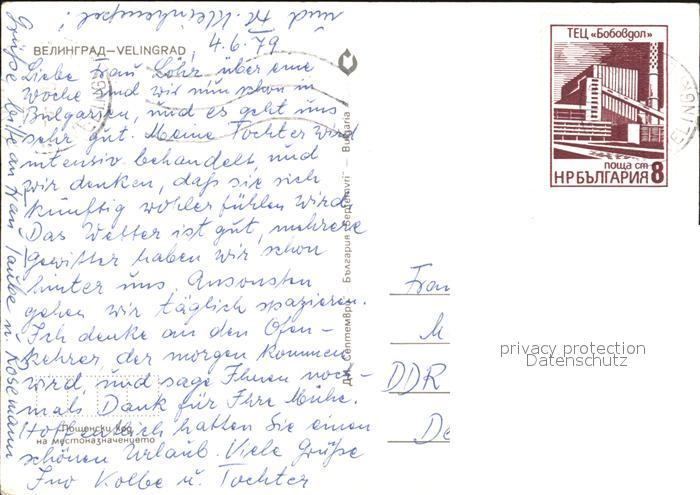 ВЕЛИНГРАД—VELINGRAD, 4.6.79
Liebe Frau Löhr, über eine
Woche sind wir nun schon in
Bulgarien, und es geht uns
sehr gut. Meine Tochter wird
intensiv behandelt, und
wir denken, daß sie sich
künftig wohler fühlen wird.
Das Wetter ist gut, mehrere
Gewitter haben wir schon
hinter uns. Ansonsten
gehen wir täglich spazieren.
Ich denke an den Ofen-
kehrer, der morgen kommen
wird, und sage Ihnen noch-
mals Dank für Ihre Mühe.
Hoffentlich hatten Sie einen
schönen Urlaub. Viele Grüße
Ihre Kolbe u. Tochter
Grüße bitte an Frau Taube u. Rosemann
und
Пощенски код
на местоназначението
ДИ „Септември“ България Septemvri — Bulgaria
ТЕЦ „Бобовдол“
поща ст 8
НР БЪЛГАРИЯ
Frau
M
DDR
De
privacy protection
Datenschutz